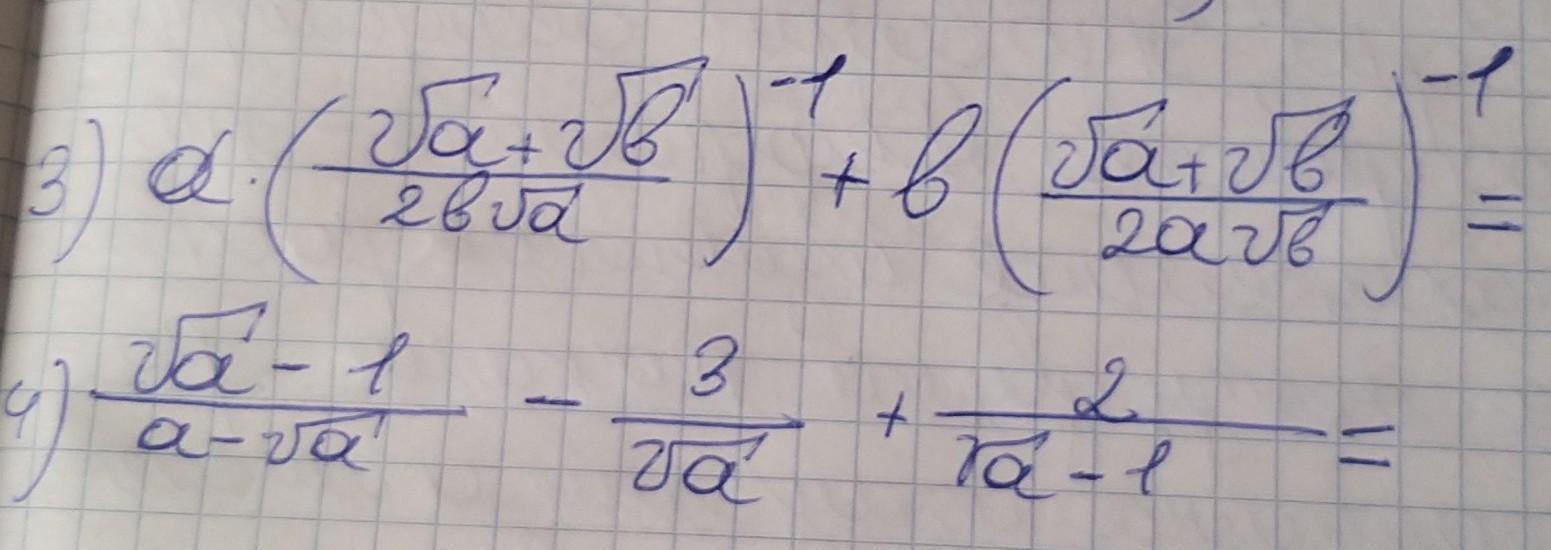 3) a · ((√a + √b) / (2b√a))^-1 + b ((√a + √b) / (2a√b))^-1 =
4) (√a - 1) / (a - √a) - 3 / √a + 2 / (√a - 1) =